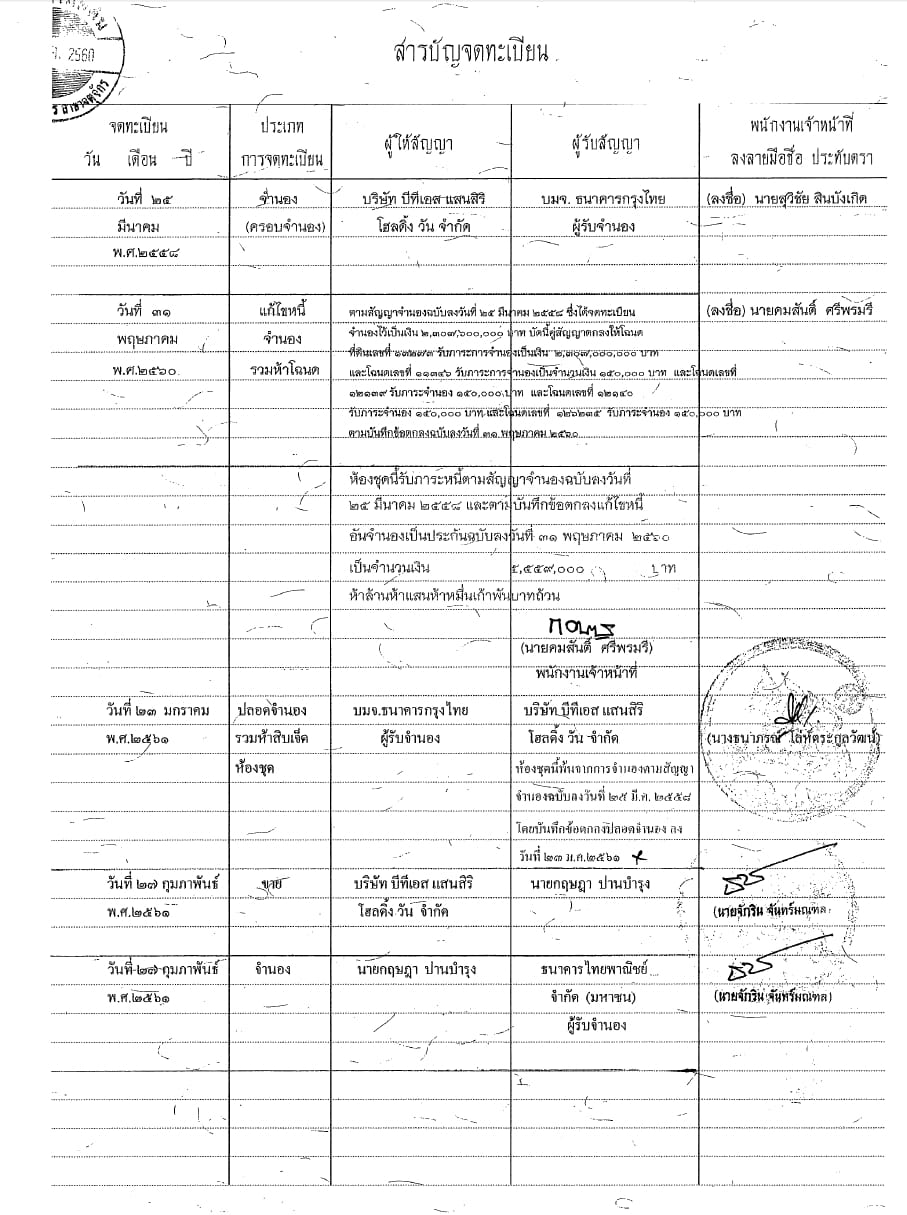 . 2560
สาขาจตุจักร
สารบัญจดทะเบียน
จดทะเบียน
วัน เดือน ปี
ประเภท
การจดทะเบียน
ผู้ให้สัญญา
ผู้รับสัญญา
พนักงานเจ้าหน้าที่
ลงลายมือชื่อ ประทับตรา
วันที่ ๒๕ จำนอง บริษัท บีทีเอส แสนสิริ บมจ. ธนาคารกรุงไทย (ลงชื่อ) นายสุวิชัย สินบังเกิด
มีนาคม (ครอบจำนอง) โฮลดิ้ง วัน จำกัด ผู้รับจำนอง
พ.ศ.๒๕๕๘
วันที่ ๓๑ แก้ไขหนี้ ตามสัญญาจำนองฉบับลงวันที่ ๒๕ มีนาคม ๒๕๕๘ ซึ่งได้จดทะเบียน (ลงชื่อ) นายคมสันติ์ ศรีพรมรี
พฤษภาคม จำนอง จำนองไว้เป็นเงิน ๒,๓๐๗,๖๐๐,๐๐๐ บาท บัดนี้คู่สัญญาตกลงให้โฉนด
ที่ดินเลขที่ ๑๓๒๗๓ รับภาระการจำนองเป็นเงิน ๒,๓๐๗,๐๐๐,๐๐๐ บาท
พ.ศ.๒๕๖๐ รวมห้าโฉนด และโฉนดเลขที่ ๑๑๓๔๖ รับภาระการจำนองเป็นจำนวนเงิน ๑๕๐,๐๐๐ บาท และโฉนดเลขที่
๑๒๑๓๙ รับภาระจำนอง ๑๕๐,๐๐๐ บาท และโฉนดเลขที่ ๑๒๑๔๐
รับภาระจำนอง ๑๕๐,๐๐๐ บาท และโฉนดเลขที่ ๑๒๖๒๓๕ รับภาระจำนอง ๑๕๐,๐๐๐ บาท
ตามบันทึกข้อตกลงฉบับลงวันที่ ๓๑ พฤษภาคม ๒๕๖๐
ห้องชุดนี้รับภาระหนี้ตามสัญญาจำนองฉบับลงวันที่
๒๕ มีนาคม ๒๕๕๘ และตามบันทึกข้อตกลงแก้ไขหนี้
อันจำนองเป็นประกันฉบับลงวันที่ ๓๑ พฤษภาคม ๒๕๖๐
เป็นจำนวนเงิน ๕,๕๕๙,๐๐๐ บาท
ห้าล้านห้าแสนห้าหมื่นเก้าพันบาทถ้วน
(นายคมสันติ์ ศรีพรมรี)
พนักงานเจ้าหน้าที่
วันที่ ๒๓ มกราคม ปลอดจำนอง บมจ.ธนาคารกรุงไทย บริษัท บีทีเอส แสนสิริ
พ.ศ.๒๕๖๑ รวมห้าสิบเจ็ด ผู้รับจำนอง โฮลดิ้ง วัน จำกัด (นางธนาภรณ์ โล่ห์ตระกูลวัฒน์)
ห้องชุด ห้องชุดนี้พ้นจากการจำนองตามสัญญา
จำนองฉบับลงวันที่ ๒๕ มี.ค. ๒๕๕๘
โดยบันทึกข้อตกลงปลอดจำนอง ลง
วันที่ ๒๓ ม.ค.๒๕๖๑
วันที่ ๒๗ กุมภาพันธ์ ขาย บริษัท บีทีเอส แสนสิริ นายกฤษฎา ปานบำรุง
พ.ศ.๒๕๖๑ โฮลดิ้ง วัน จำกัด (นายจักริน จันทร์มณฑล)
วันที่ ๒๗ กุมภาพันธ์ จำนอง นายกฤษฎา ปานบำรุง ธนาคารไทยพาณิชย์
พ.ศ.๒๕๖๑ จำกัด (มหาชน) (นายจักริน จันทร์มณฑล)
ผู้รับจำนอง